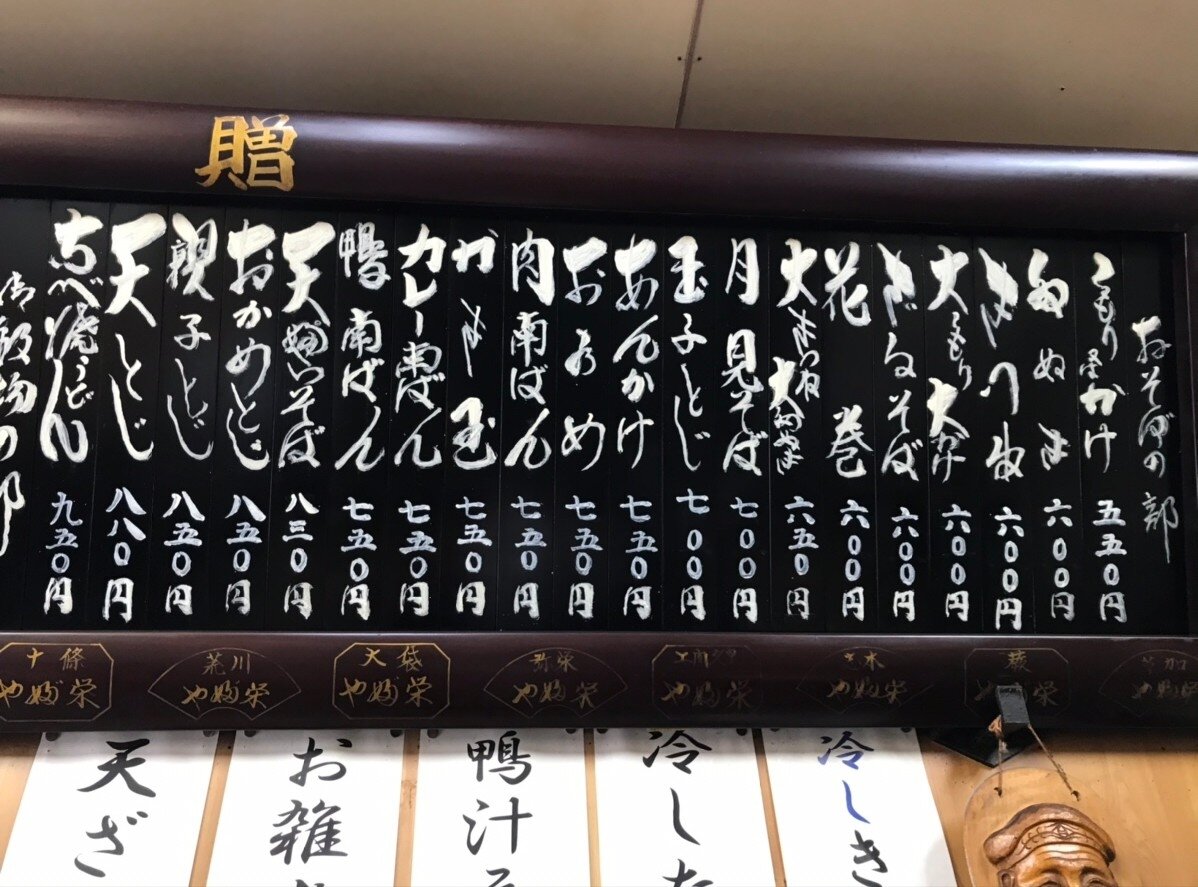 贈
おそばの部
もり かけ 五五〇円
たぬき 六〇〇円
きつね 六〇〇円
大もり 大かけ 六〇〇円
ざるそば 六〇〇円
花巻 六〇〇円
大きつね 大たぬき 六五〇円
月見そば 七〇〇円
玉子とじ 七〇〇円
あんかけ 七五〇円
おかめ 七五〇円
肉南ばん 七五〇円
かき玉 七五〇円
カレー南ばん 七五〇円
鴨南ばん 七五〇円
天婦らそば 八三〇円
おかめとじ 八五〇円
親子とじ 八五〇円
天とじ 八八〇円
なべ焼うどん 九五〇円
御飯物の部
弥栄 やぶ栄
大袋 やぶ栄
荒川 やぶ栄
十條 やぶ栄
冷しき
冷した
鴨汁そ
お雑
天ざ